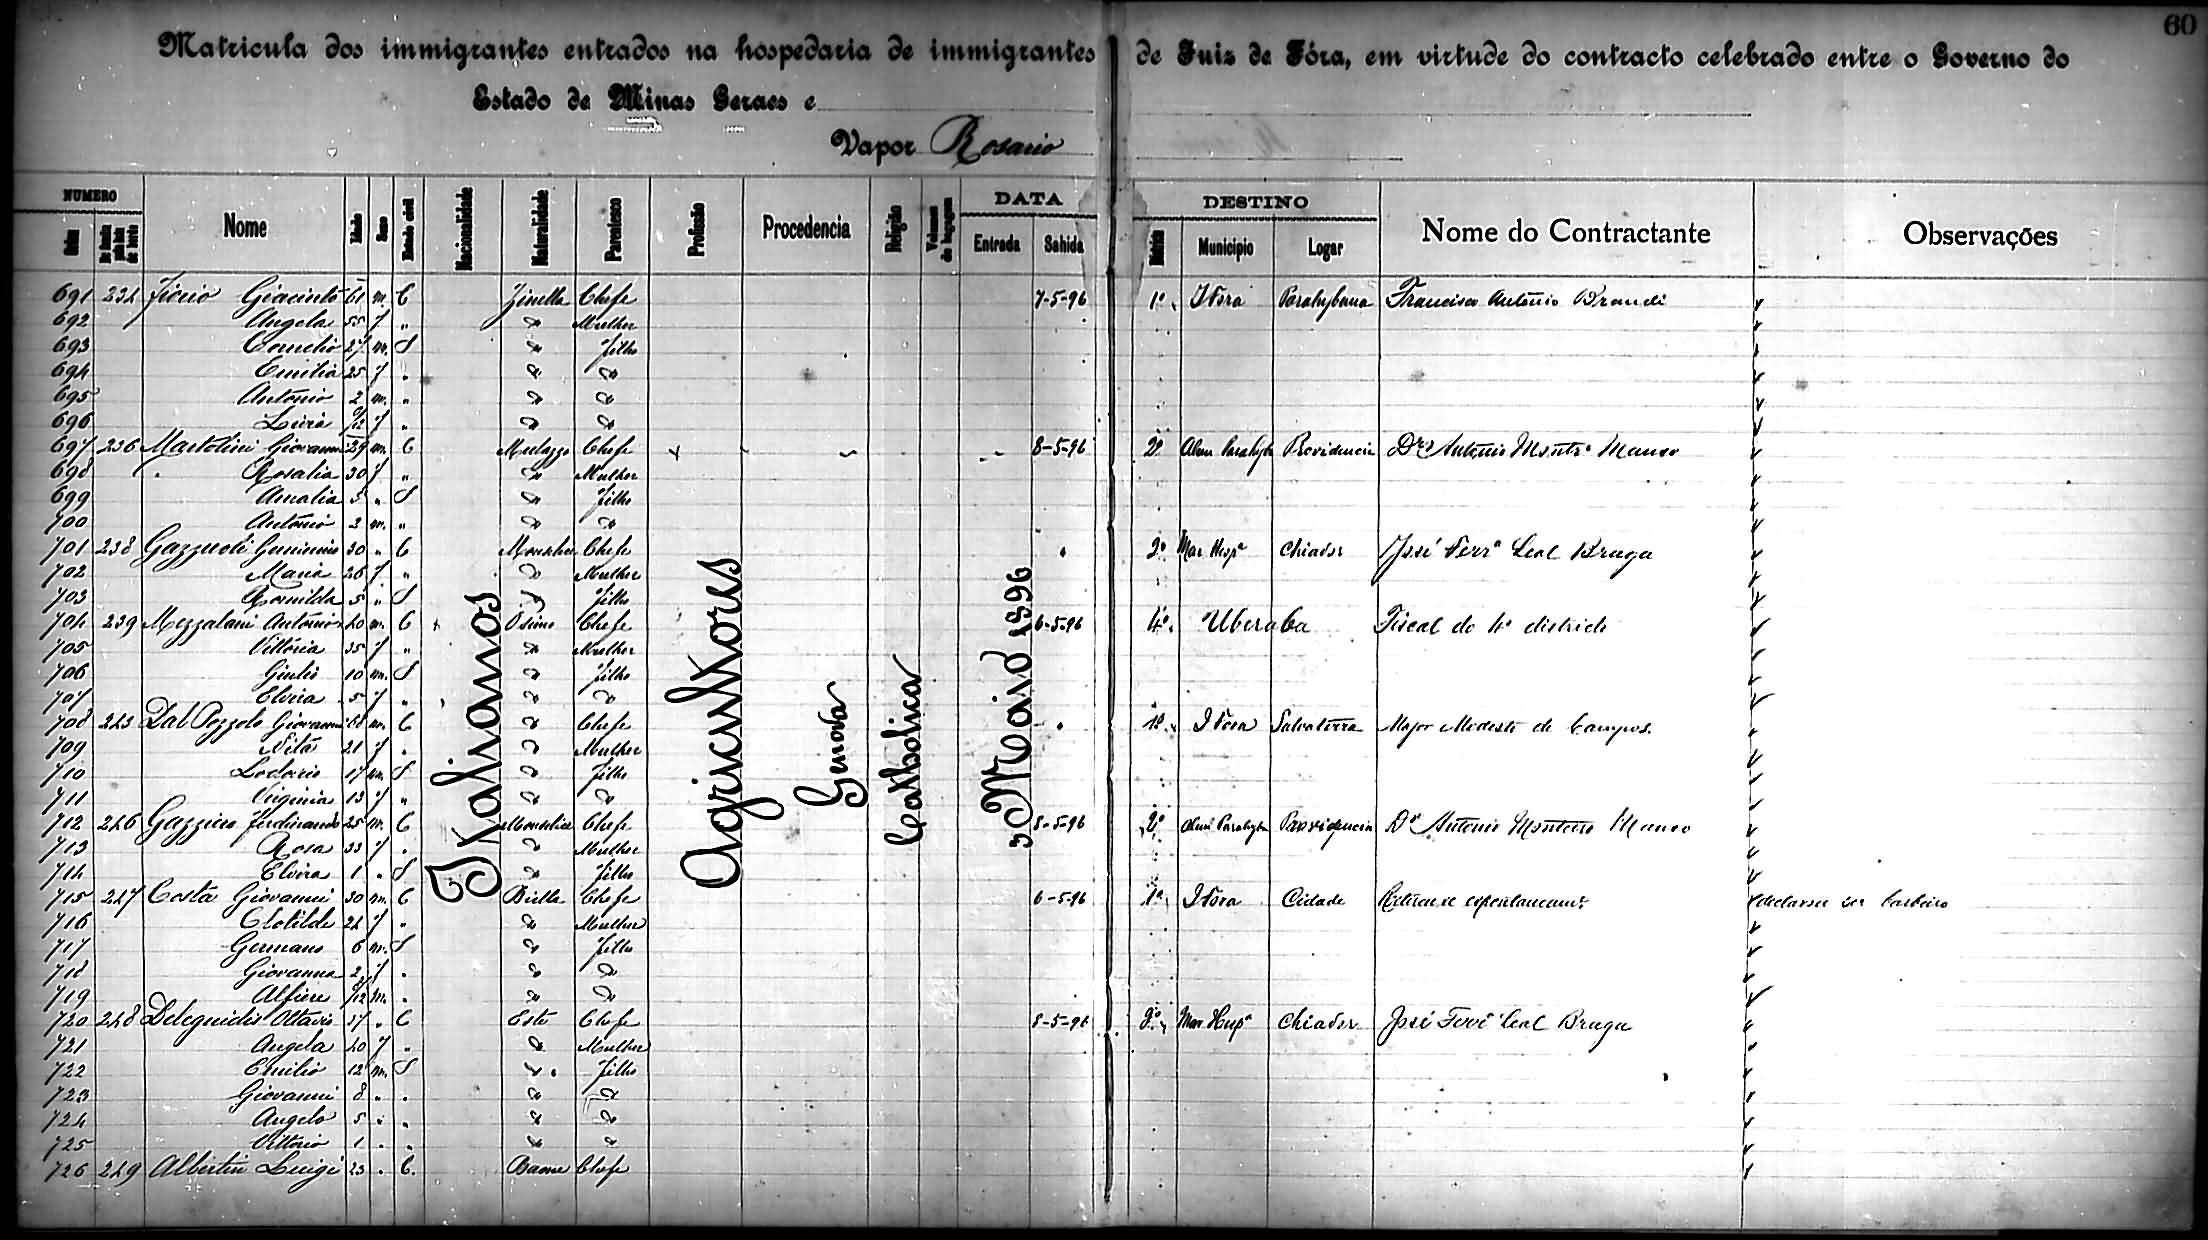 60
Matricula dos immigrantes entrados na hospedaria de immigrantes de Juiz de Fóra, em virtude do contracto celebrado entre o Governo do
Estado de Minas Geraes e
Vapor Rosario
NUMERO Nome Idade Sexo Estado civil Nacionalidade Naturalidade Parentesco Profissão Procedencia Religião Volumes de bagagem DATA Entrada Sahida DESTINO Municipio Logar Nome do Contractante Observações
Italianos
Agricultores
Genova
Catholica
3 Maio 1896
691 234 Giacinto 61 m. C Chefe 7-5-96 1º J Fora Parahybuna Francisco Antonio Brandi
692 Angela 55 f " Mulher
693 27 m. S " Filho
694 Emilia 25 f " " "
695 Antonio 2 m. " " "
696 f " " "
697 236 Martolini Giovanni 29 m. C Chefe 8-5-96 2º Alem Parahyba Providencia Dr. Antonio Montrº Manso
698 Rosalia 30 f " " Mulher
699 Amalia 5 " S " Filho
700 Antonio 2 m. " " "
701 238 30 " C Chefe " 2º Mar Hespª Chiador José Ferrª Leal Braga
702 Maria 26 f " " Mulher
703 Romilda 5 " S " Filho
704 239 Mezzalani Antonio 40 m. C Osimo Chefe 6-5-96 4º Uberaba Fiscal do 4º districto
705 Vittoria 35 f " " Mulher
706 Giulio 10 m. S " Filho
707 Elvira 5 f " " "
708 243 Dal Pozzolo Giovanni m. C " Chefe " 1º J Fora Salvaterra Major Modesto de Campos.
709 21 f " " Mulher
710 17 m. S " Filho
711 Virginia 13 f " " "
712 246 Ferdinando 25 m. C Monselice Chefe 8-5-96 2º Alem Parahyba Providencia Dr Antonio Monteiro Manso
713 Rosa 33 f " " Mulher
714 Elvira 1 " S " Filho
715 247 Costa Giovanni 30 m. C Biella Chefe 6-5-96 1º J Fora Cidade Retirou-se espontaneamte declarou ser barbeiro
716 Clotilde 24 f " " Mulher
717 Germano 6 m. S " Filho
718 Giovanna 2 f " " "
719 Alfiere m. " " "
720 248 Ottavio " C Este Chefe 8-5-96 Mar Hespª Chiador José Ferrª Leal Braga
721 Angela 40 f " " Mulher
722 Emilio 12 m. S " Filho
723 Giovanni 8 " " " "
724 Angelo 5 " " " "
725 Vittorio 1 " " " "
726 249 Albertin Luigi 23 " C. Chefe